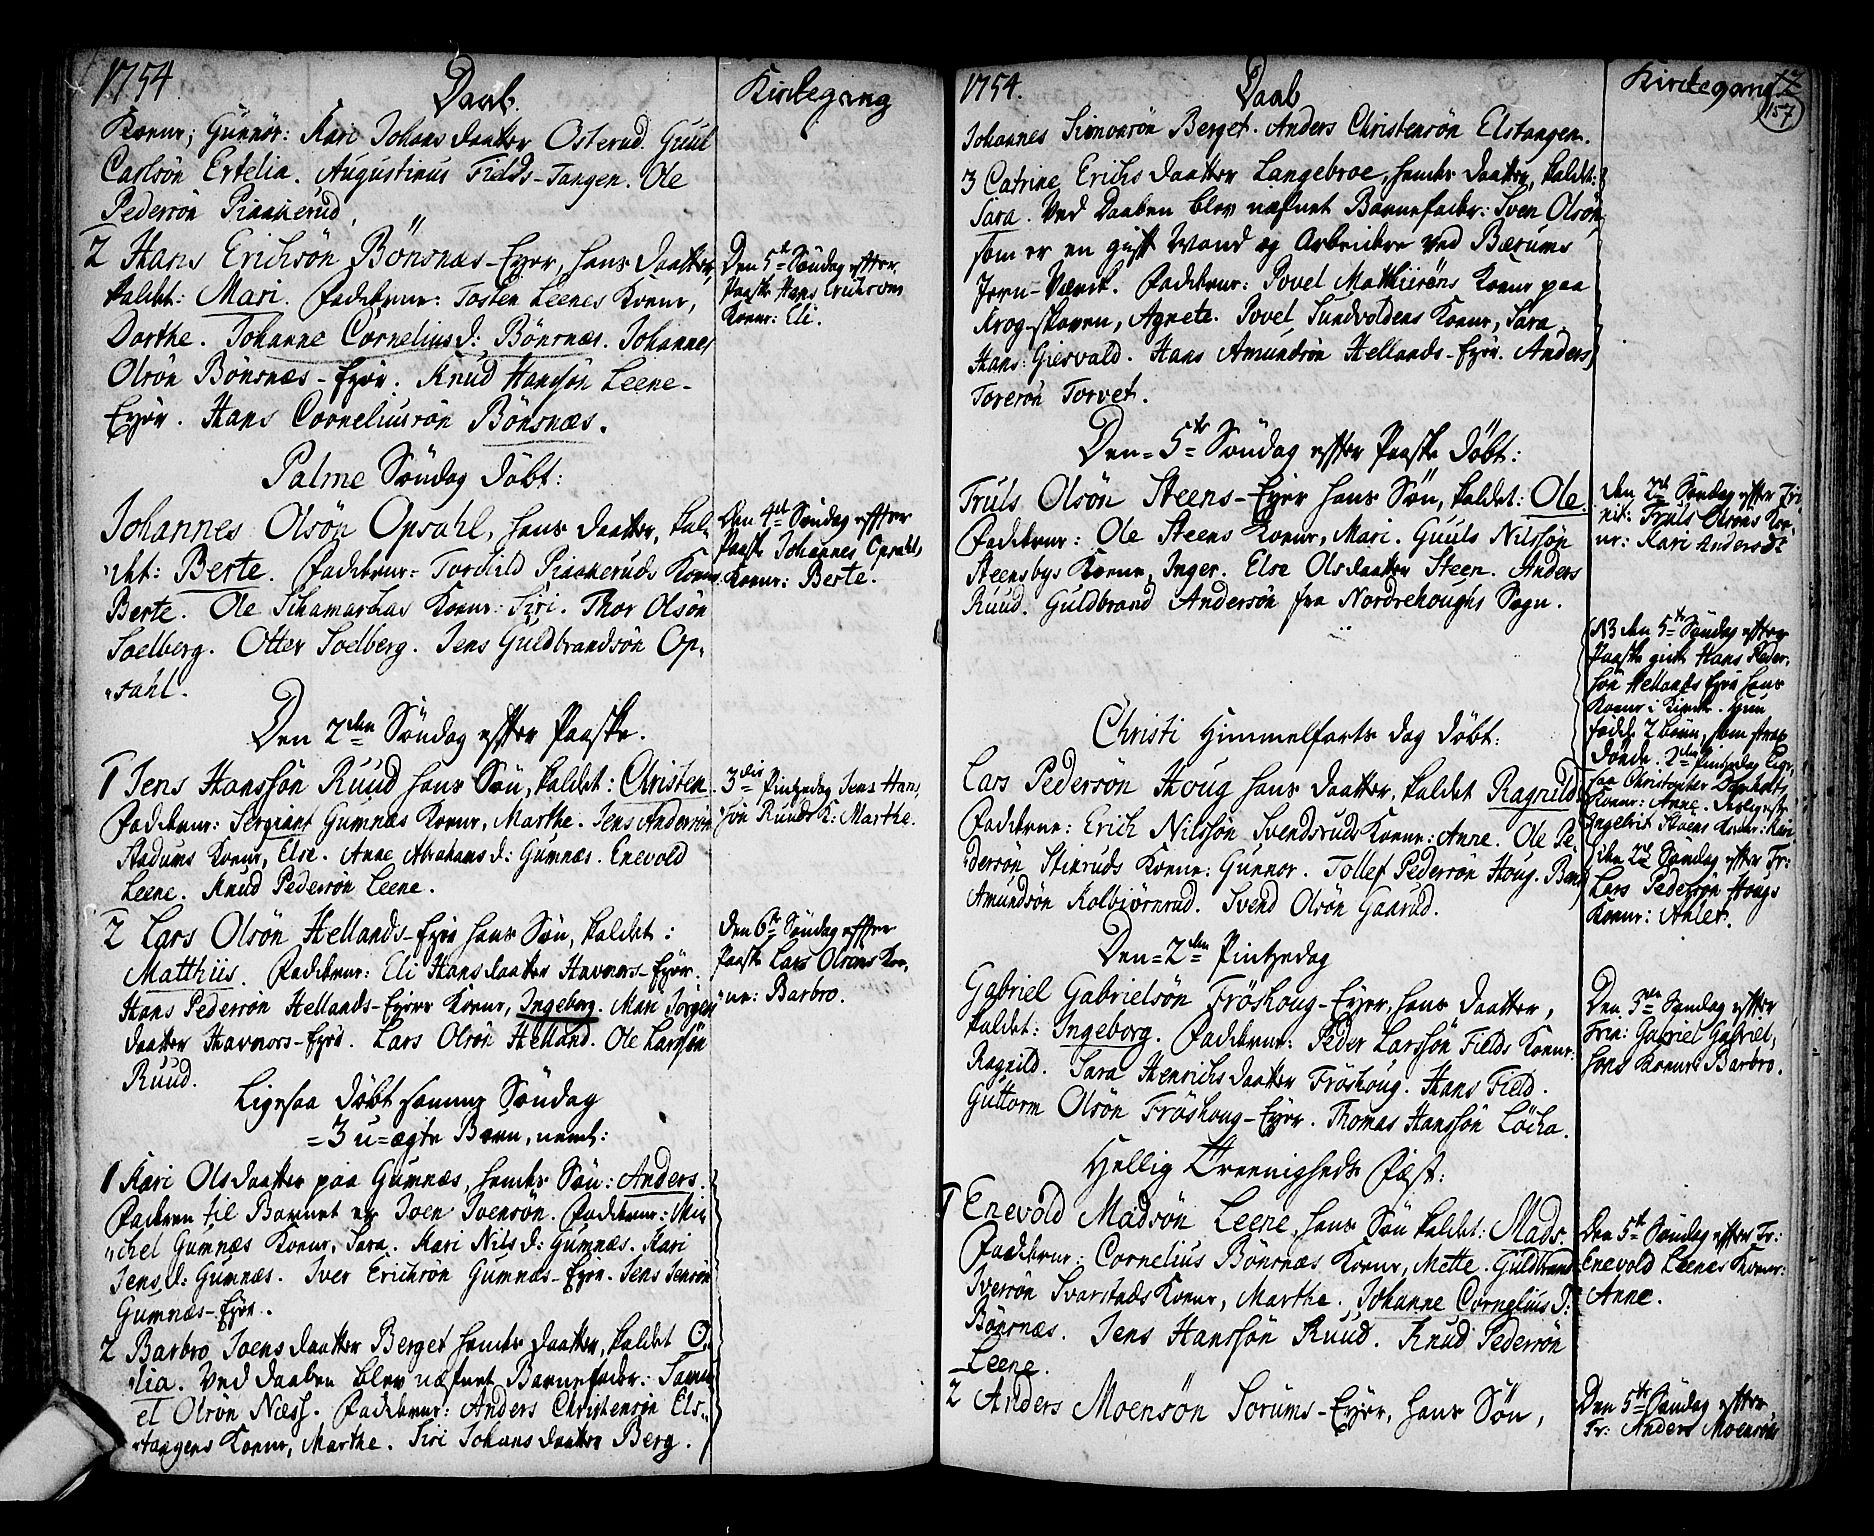 1754
Daab.
Kirkegang
Konur; Gunnor: Kari Johans daatter Osterud. Guul
Carlsön Ertelia. Augustinus Fields-Tangen. Ole
Pedersön Piaakerud.
2 Hans Erichsön Bönsnæs-Eyer, hans daatter,
kaldet: Mari. Fadderne: Tosten Leenes Konur,
Dorthe. Johanne Cornelius d: Bönsnæs. Johannes
Olsön Bönsnæs-Eyer. Knud Hanssön Leene-
Eyer. Hans Corneliusön Bönsnæs.
Den 5te Söndag efter
Paaske Hans Erichsöns
Konur: Eli.
Palme Söndag döbt:
Johannes Olsön Opsahl, hans daatter, kal-
det: Berte. Fadderne: Torchild Piaakeruds Konur
Berte. Ole Schamarchas Konur: Siri. Thor Olsön
Soelberg. Otter Soelberg. Jens Guldbrandsön Op-
sahl.
Den 4de Söndag efter
Paaske Johannes Opsahls
Konur: Berte.
Den 2den Söndag efter Paaske.
1 Jens Hanssön Ruud hans Sön, kaldet: Christen
Fadderne: Sergiant Gumnæs Konur, Marthe. Jens Andersön
Stadums Konur, Else. Anne Abrahams d: Gumnæs. Enevold
Leene. Knud Pedersön Leene.
3die Pintzedag Jens Han-
sön Ruuds K: Marthe.
2 Lars Olsön Hellands-Eyer hans Sön, kaldet:
Matthiis. Fadderne: Eli Hans daatter Havnors-Eyer.
Hans Pedersön Hellands-Eyers Konur, Ingeborg. Mari Jörgens
daatter Havnors-Eyer. Lars Olsön Helland. Ole Larssön
Ruud.
Den 6te Söndag efter
Paaske Lars Olsöns Ko-
nur: Barbro.
Ligesaa döbt samme Söndag
=3 u=ægte Börn, neml:
1 Kari Ols daatter paa Gumnæs, hendes Sön: Anders.
Faderen til Barnet er Joen Joensön. Fadderne: Mi-
chel Gumnæs Konur, Sara. Kari Nils d: Gumnæs. Kari
Jens d: Gumnæs. Iver Erichsön Gumnæs-Eyer. Jens Jensön
Gumnæs-Eyer.
2 Barbro Joens daatter Berget hendes daatter, kaldet O-
lia. Ved daaben blev næfnet Barnefader: Samu-
el Olsön Næss. Fadderne: Anders Christensön Els-
tangens Konur, Marthe. Siri Johans daatter Berg.
1754.
Daab
Kirkegang
157
Johannes Simonsön Berget. Anders Christensön Elstangen.
3 Catrine Erichs daatter Langebroe, hendes daatter, kaldet:
Sara. Ved Daaben blev næfnet Barnefader: Sven Olsön,
som er en gift Mand og Arbeider ved Bærums
Jern-Værck. Fadderne: Povel Mathiisöns Konur paa
Krog-skoven, Agnete. Povel Sundvoldens Konur, Sara.
Hans: Giesvald. Hans Amundsön Hellands-Eyer. Anders
Toresön Torvet.
Den=5te Söndag efter Paaske döbt:
Truls Olsön Steens-Eyer hans Sön, kaldet: Ole.
Fadderne: Ole Steens Konur, Mari. Guuls Nilssön
Steensbys Konur, Inger. Else Ols daatter Steen. Anders
Ruud. Guldbrand Andersön fra Nordrehoughs Sogn.
den 2den Söndag efter Tri-
nit: Truls Olsöns Ko-
nur: Kari Andersdt
NB den 5te Söndag efter
Paaske gick Hans Peder-
sön Hellands Eyer hans
Konur i Kirke. Hun
födde 2 börn, som strax
döde. 2den Pintzedag Lige-
saa Christopher
Konur: Anne. Ligesaa
Ingebrit Stöens Konur: Kari
Christi Himmelfarts dag döbt:
Lars Pedersön Houg hans daatter, kaldet Ragnild
Fadderne: Erich Nilssön Svendsruds Konur: Anne. Ole Pe-
dersön Stixruds Konur: Gunnor. Tollef Pedersön Houg.
Amundsön Kolbiörnrud. Svend Olsön Gaarud.
den 2den Söndag efter Tr:
Lars Pedersön Hougs
Konur: Ahlet.
Den=2den Pintzedag
Gabriel Gabrielsön Fröshoug-Eyer, hans daatter,
kaldet: Ingeborg. Fadderne: Peder Larssön Fields Konur
Ragnild. Sara Henrichs daatter Fröshoug. Hans Field.
Guttorm Olsön Fröshoug-Eyer. Thomas Hanssön Löcka.
Den 3die Söndag efter
Trin: Gabriel Gabriel-
söns Konur: Barbro.
Hellig Treenigheds Fæst:
1 Enevold Madsön Leene, hans Sön kaldet: Mads.
Fadderne: Cornelius Bönsnæs Konur, Mette. Guldbrand
Iversön Svarstads Konur, Marthe. Johanne Cornelius d:
Bönsnæs. Jens Hanssön Ruud. Knud Pedersön
Leene.
Den 5te Söndag efter Tr:
Enevold Leenes Konur:
Anne.
2 Anders Moensön Sorums-Eyer, hans Sön,
Den 5te Söndag efter
Tr: Anders Moensöns